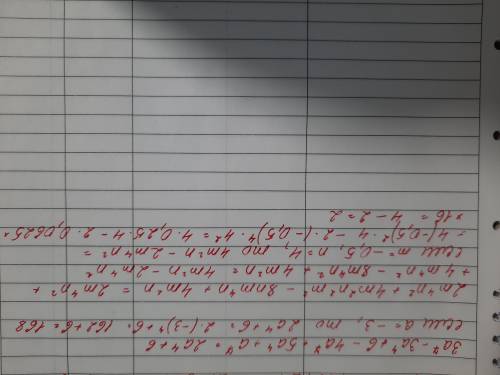 3a⁷-3a⁴+6-4a⁷+5a⁴+a⁷=2a⁴+6
если a=-3, то 2a⁴+6=2·(-3)⁴+6=162+6=168
2m⁴n²+4m²n²m²-8nm⁴n+4m²n=2m⁴n²+
+4m⁴n²-8m⁴n²+4m²n=4m²n-2m⁴n²
если m=-0,5, n=4, то 4m²n-2m⁴n²=
=4·(-0,5)²·4-2·(-0,5)⁴·4²=4·0,25·4-2·0,0625×
×16=4-2=2